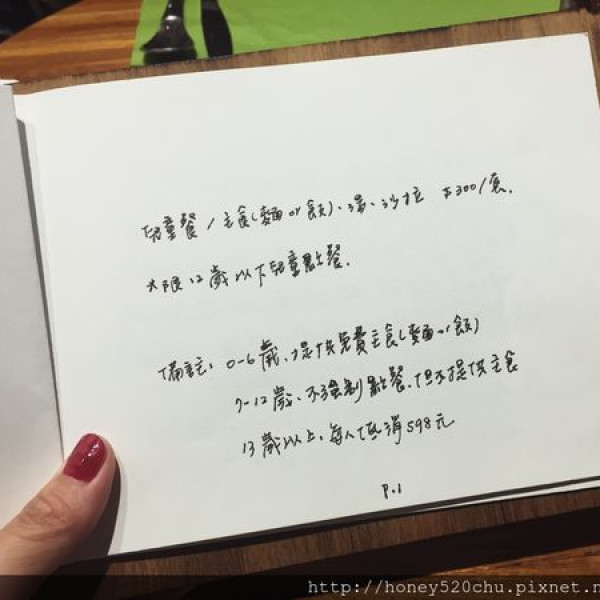 兒童餐/主食(麵or飯)、湯、沙拉 $300/套.
*限12歲以下兒童點餐.
備註: 0-6歲、提供免費主食(麵or飯)
7-12歲、不強制點餐、但不提供主食
13歲以上、每人低消598元
P.1
http://honey520chu.pixnet.n